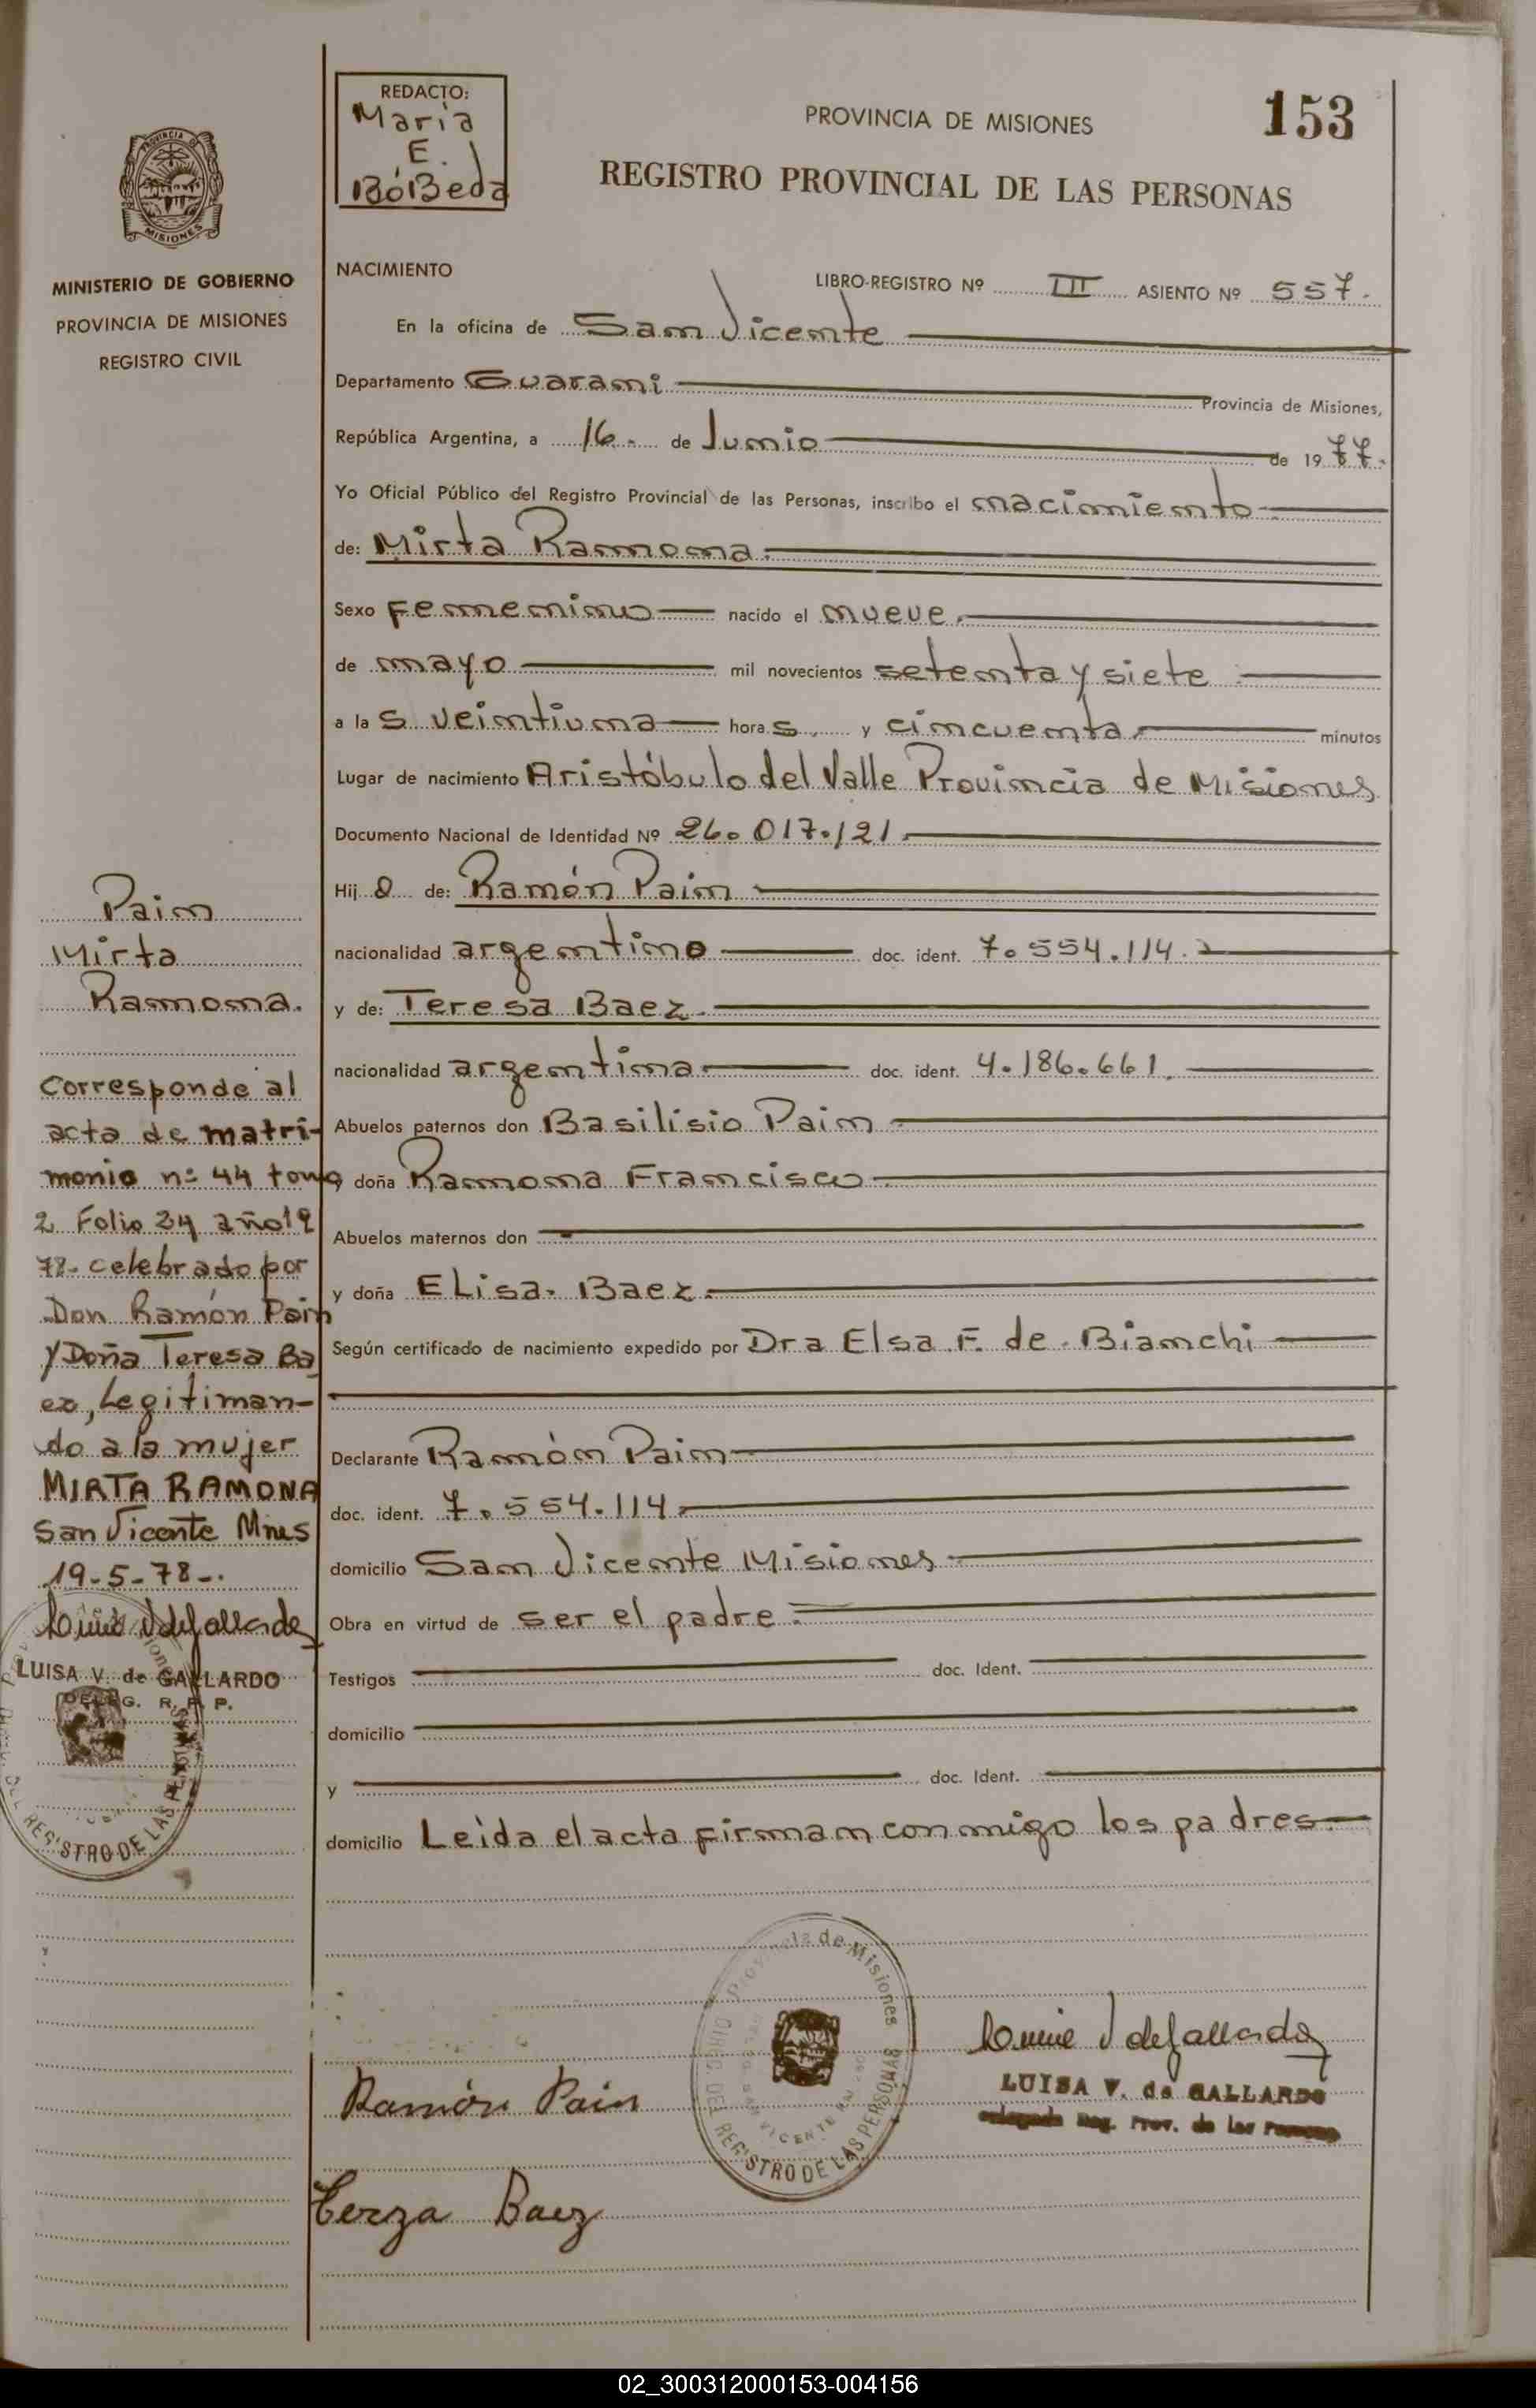 REDACTO:
Maria
E.
BóBeda
PROVINCIA DE MISIONES
153
REGISTRO PROVINCIAL DE LAS PERSONAS
PROVINCIA
MISIONES
MINISTERIO DE GOBIERNO
PROVINCIA DE MISIONES
REGISTRO CIVIL
NACIMIENTO
LIBRO-REGISTRO Nº III ASIENTO Nº 557.
En la oficina de San Vicente
Departamento Guarani Provincia de Misiones,
República Argentina, a 16. de Junio de 1977.
Yo Oficial Público del Registro Provincial de las Personas, inscribo el nacimiento
de: Mirta Ramona.
Sexo femenino nacido el nueve.
de mayo mil novecientos setenta y siete
a las veintiuna horas, y cincuenta minutos
Lugar de nacimiento Aristóbulo del Valle Provincia de Misiones
Documento Nacional de Identidad Nº 26.017.121
Hija de: Ramón Paim
nacionalidad argentino doc. ident. 7.554.114.
y de: Teresa Baez.
nacionalidad argentina doc. ident. 4.186.661.
Abuelos paternos don Basilisio Paim
y doña Ramona Francisco
Abuelos maternos don
y doña Elisa. Baez.
Según certificado de nacimiento expedido por Dra Elsa F. de Bianchi
Declarante Ramón Paim
doc. ident. 7.554.114
domicilio San Vicente Misiones
Obra en virtud de ser el padre.
Testigos doc. Ident.
domicilio
y doc. Ident.
domicilio Leída el acta firman conmigo los padres.
Paim
Mirta
Ramona.
Corresponde al
acta de matri-
monio nº 44 tomo
2 Folio 24 año 19
78. celebrado por
Don Ramón Pain
y Doña Teresa Ba
ez, Legitiman-
do a la mujer
MIRTA RAMONA
San Vicente Mnes
19-5-78-.
LUISA V. de GALLARDO
DELEG. R. P. P.
REGISTRO DE LAS PERSONAS
Provincia de Misiones
DIREC. DEL REGISTRO DE LAS PERSONAS
SAN VICENTE
LUISA V. de GALLARDO
Delegada Reg. Prov. de las Personas
Ramón Pain
Terza Baez
02_300312000153-004156